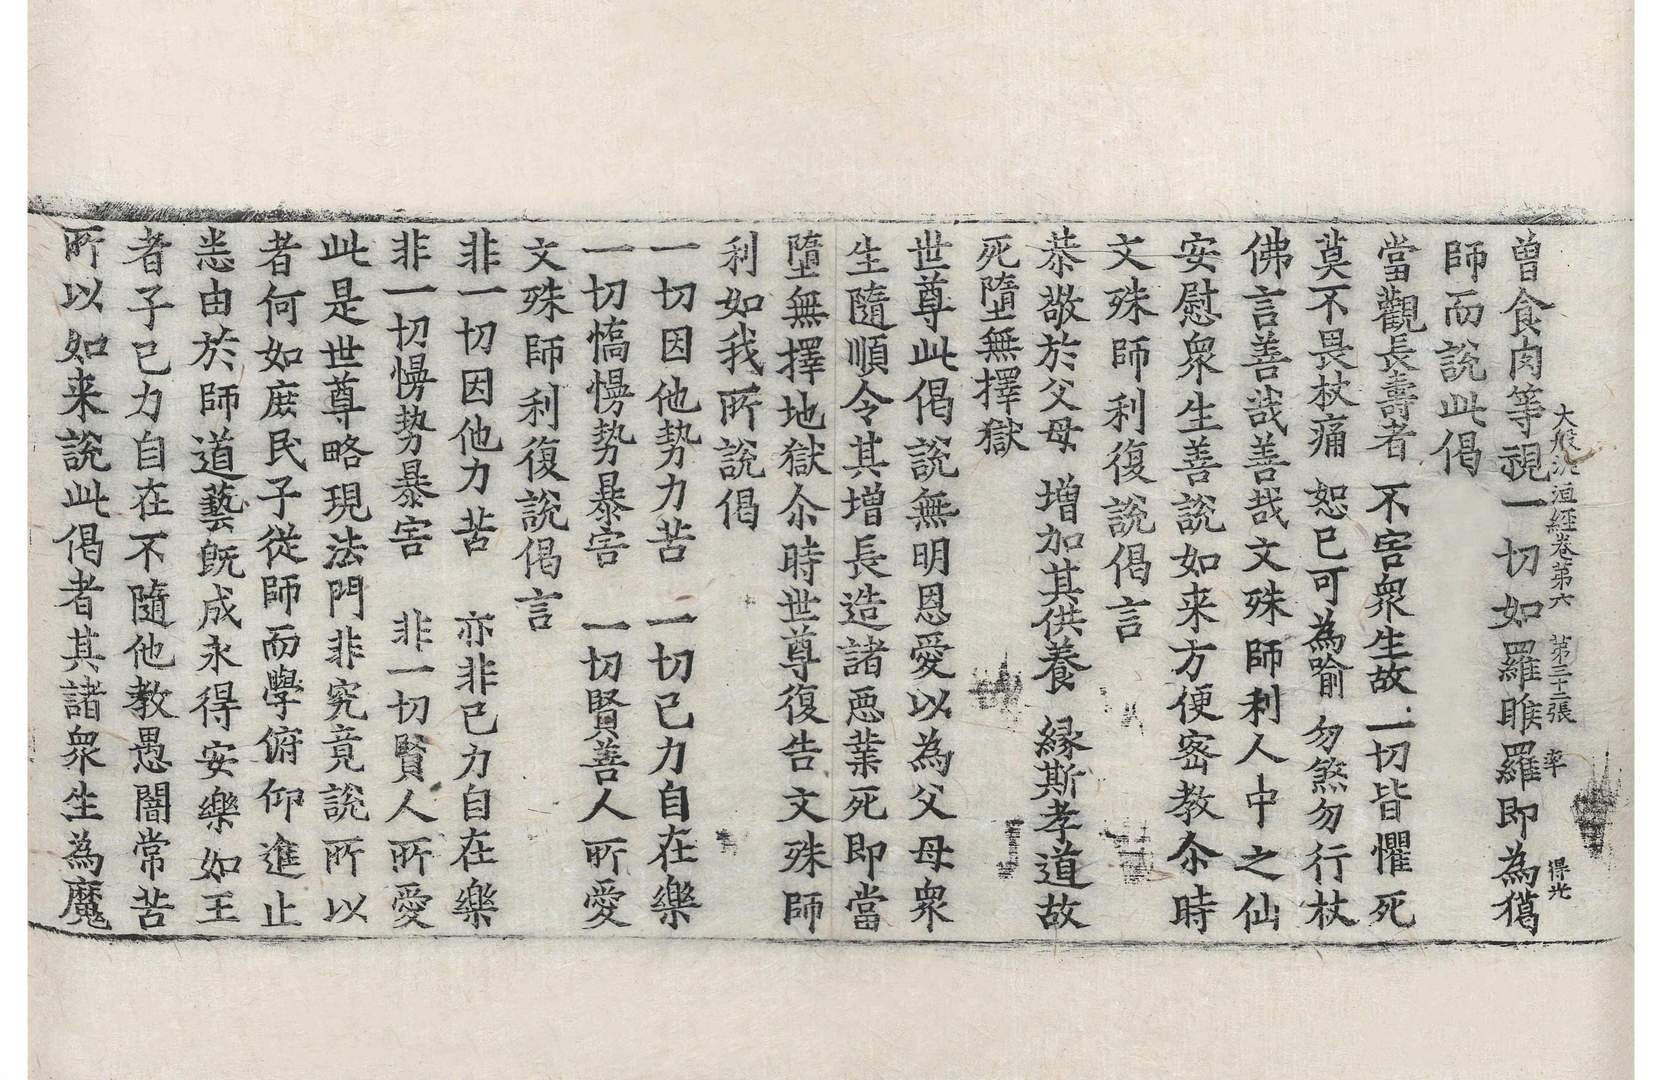 大般泥洹經卷第六 第三十二張 率 得光
曽食肉等視一切如羅睺羅即為猲
師而說此偈
當觀長壽者 不害衆生故 一切皆懼死
莫不畏杖痛 恕已可為喻 勿煞勿行杖
佛言善哉善哉文殊師利人中之仙
安慰衆生善說如来方便密教尒時
文殊師利復說偈言
恭敬於父母 增加其供養 縁斯孝道故
死墮無擇獄
世尊此偈說無明恩愛以為父母衆
生隨順令其增長造諸惡業死即當
墮無擇地獄尒時世尊復告文殊師
利如我所說偈
一切因他勢力苦 一切已力自在樂
一切憍慢勢暴害 一切賢善人所愛
文殊師利復說偈言
非一切因他力苦 亦非已力自在樂
非一切慢勢暴害 非一切賢人所愛
此是世尊略現法門非究竟說所以
者何如庶民子從師而學俯仰進止
悉由於師道藝旣成永得安樂如王
者子已力自在不隨他教愚闇常苦
所以如来說此偈者其諸衆生為魔